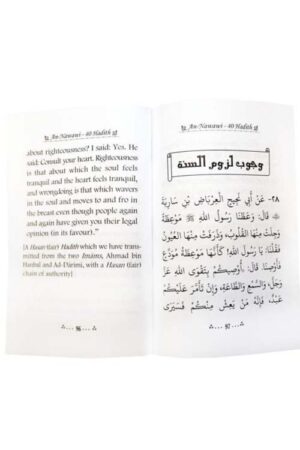 An-Nawawi - 40 Hadith
about righteousness? I said: Yes. He
said: Consult your heart. Righteousness
is that about which the soul feels
tranquil and the heart feels tranquil,
and wrongdoing is that which wavers
in the soul and moves to and fro in
the breast even though people again
and again have given you their legal
opinion (in its favour).”
[A Hasan (fair) Hadith which we have trans-
mitted from the two Imāms, Ahmad bin
Hanbal and Ad-Dārimi, with a Hasan (fair)
chain of authority]
96
An-Nawawi - 40 Hadith
وجوب لزوم السنة
٢٨- عَنْ أَبِي نَجِيحٍ الْعِرْبَاضِ بْنِ سَارِيَةَ
قَالَ: وَعَظَنَا رَسُولُ اللهِ ﷺ مَوْعِظَةً
وَجِلَتْ مِنْهَا الْقُلُوبُ، وَذَرَفَتْ مِنْهَا الْعُيُونُ
فَقُلْنَا: يَا رَسُولَ اللهِ! كَأَنَّهَا مَوْعِظَةُ مُوَدِّعٍ
فَأَوْصِنَا. قَالَ: أُوصِيكُمْ بِتَقْوَى اللهِ عَزَّ
وَجَلَّ، وَالسَّمْعِ وَالطَّاعَةِ، وَإِنْ تَأَمَّرَ عَلَيْكُمْ
عَبْدٌ. فَإِنَّهُ مَنْ يَعِشْ مِنْكُمْ فَسَيَرَى
97